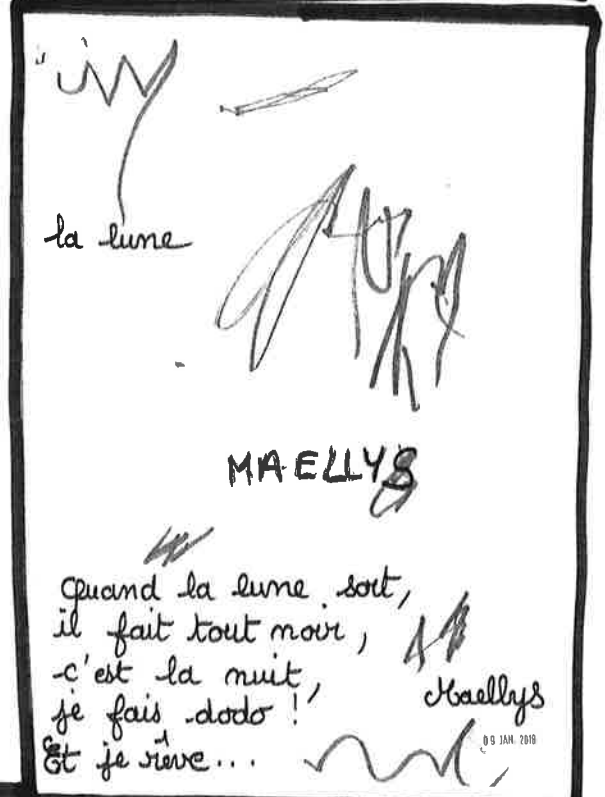 la lune
MAELLYS
Quand la lune sort,
il fait tout noir,
c'est la nuit,
je fais dodo !
Et je rêve...
Maellys
09 JAN. 2018